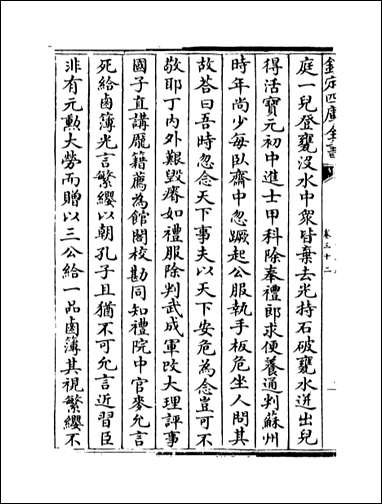 欽定四庫全書
卷三十二
庭一兒登甕沒水中衆皆棄去光持石破甕水迸出兒
得活寶元初中進士甲科除奉禮郎求便養通判蘇州
時年尚少每臥齋中忽蹶起公服執手板危坐人問其
故荅曰吾時忽念天下事夫以天下安危為念豈可不
敬耶丁內外艱毀瘠如禮服除判武成軍改大理評事
國子直講龎籍薦為館閣校勘同知禮院中官麥允言
死給鹵簿光言繁纓以朝孔子且猶不可允言近習臣
非有元勲大勞而贈以三公給一品鹵簿其視繁纓不